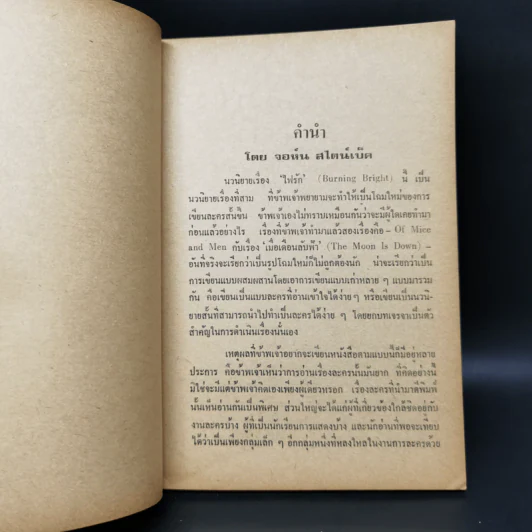 คำนำ
โดย จอห์น สไตน์เบ็ค
นวนิยายเรื่อง "ไฟรัก" (Burning Bright) นี้ เป็น
นวนิยายเรื่องที่สาม ที่ข้าพเจ้าพยายามจะทำให้เป็นโฉมใหม่ของการ
เขียนละครสั้นขึ้น ข้าพเจ้าเองไม่ทราบเหมือนกันว่าจะมีผู้ใดเคยทำมา
ก่อนแล้วอย่างไร เรื่องที่ข้าพเจ้าทำมาแล้วสองเรื่องคือ – Of Mice
and Men กับเรื่อง 'เมื่อเดือนลับฟ้า' (The Moon Is Down) –
อันที่จริงจะเรียกว่าเป็นรูปโฉมใหม่ก็ไม่ถูกต้องนัก น่าจะเรียกว่าเป็น
การเขียนแบบผสมผสานโดยเอาการเขียนแบบเก่าหลาย ๆ แบบมารวม
กัน คือเขียนเป็นแบบละครที่อ่านเข้าใจได้ง่าย ๆ หรือเขียนเป็นนวนิ-
ยายสั้นที่สามารถนำไปทำเป็นละครได้ง่าย ๆ โดยยกบทเจรจาเป็นตัว
สำคัญในการดำเนินเรื่องนั่นเอง
เหตุผลที่ข้าพเจ้าอยากจะเขียนหนังสือตามแบบนี้ก็มีอยู่หลาย
ประการ คือข้าพเจ้าเห็นว่าการอ่านเรื่องละครนั้นมันยาก ที่คิดอย่างนี้
มิใช่จะมีแต่ข้าพเจ้าคิดเองเพียงผู้เดียวหรอก เรื่องละครที่นำมาตีพิมพ์
นั้นเห็นอ่านกันเป็นพิเศษ ส่วนใหญ่จะได้แก่ผู้ที่เกี่ยวข้องใกล้ชิดอยู่กับ
งานละครบ้าง ผู้ที่เป็นนักเรียนการแสดงบ้าง และนักอ่านที่พอจะเทียบ
ได้ว่าเป็นเพียงกลุ่มเล็ก ๆ อีกกลุ่มหนึ่งที่หลงใหลในงานการละครด้วย